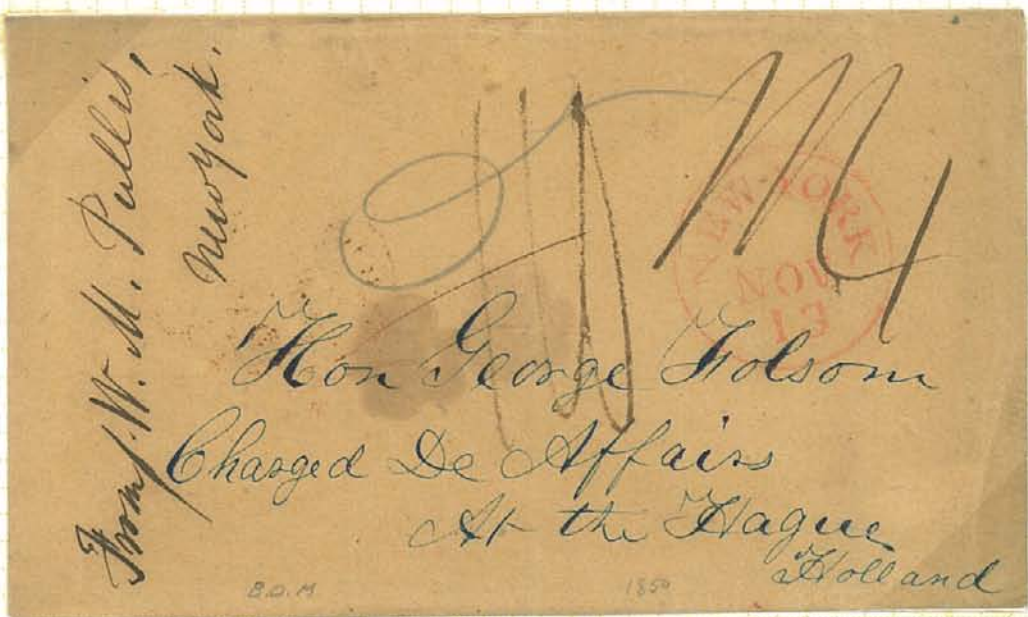 From W. M. Pullis,
Newyork.
NEW-YORK
NOV
13
Hon George Folsom
Charged De Affairs
At the Hague
Holland
B.O.M
1850